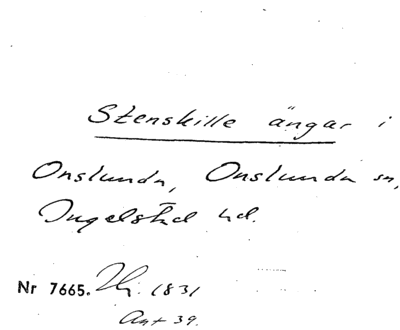 Stenskille ängar i
Onslunda, Onslunda sn,
Ingelstad hd.
Nr 7665. 1831
Ant 39.